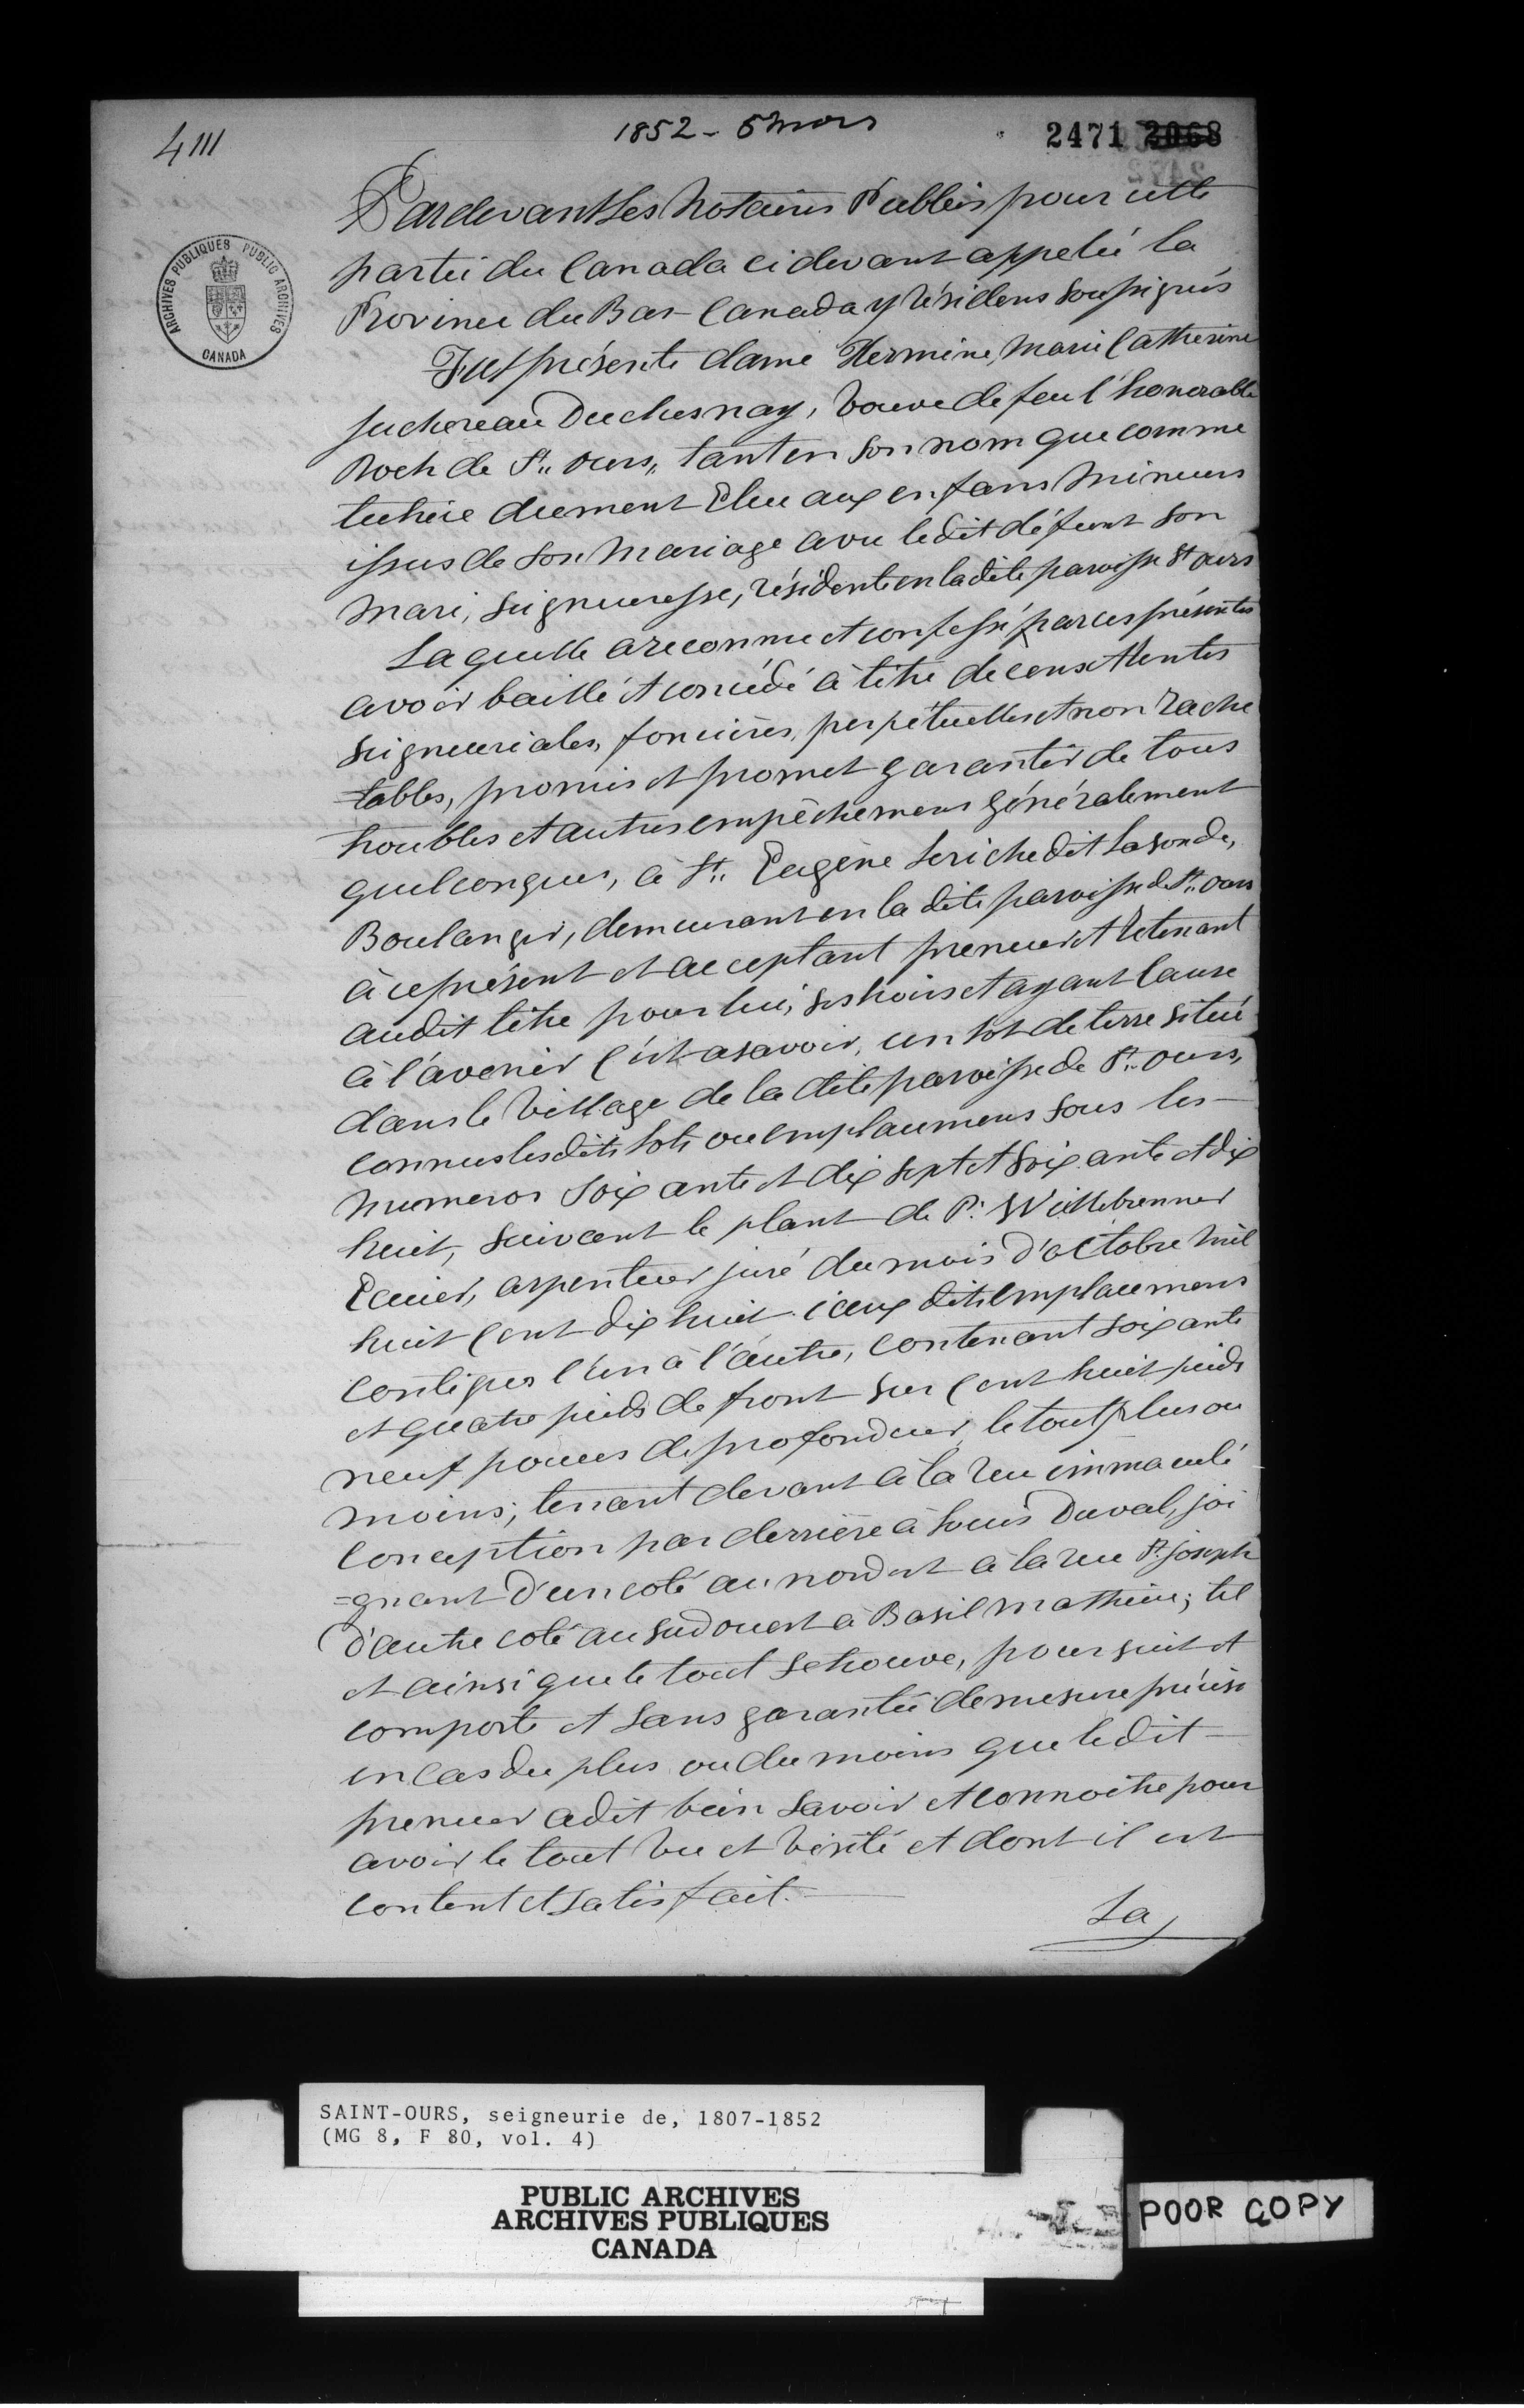 4111
1852 - 5 mars
2471 2068
ARCHIVES PUBLIQUES PUBLIC ARCHIVES
CANADA
Pardevant Les Notaires Publics pour cette
partie du Canada cidevant appelée la
Province du Bas-Canada y résidens soussignés
Fut présente dame Hermine, Marie Catherine
Juchereau Duchesnay, Veuve de feu l'honorable
Roch de St. Ours, tant en son nom que comme
tutrice duement Elue aux enfans mineurs
issus de son Mariage avec ledit défunt son
Mari, Seigneuresse, résidente en ladite paroisse St Ours
Laquelle a reconnu et confessé par ces présentes
avoir baillé et concédé à titre de cens et Rentes
Seigneuriales, foncières, perpétuelles et non rache
=tables, promis et promet garantir de tous
troubles et autres empêchemens généralement
quelconques, à Sr. Eugène Leriche dit Lasonde,
Boulanger, demeurant en la dite paroisse de St. Ours
à ce présent et acceptant preneur et Retenant
audit titre pour lui, ses hoirs et ayant Cause
à l'avenir C'est asavoir, un lot de terre situé
dans le Village de la dite paroisse de St. Ours,
connus lesdits lots ou emplacemens sous les
Numeros Soixante et dix sept et Soixante et dix
huit, suivant le plant de P. Weilbrenner
Ecuier, arpenteur juré du mois d'octobre Mil
huit Cent dix huit iceux dits emplacemens
contigus l'un à l'autre, contenant soixante
et quatre pieds de front sur Cent huit pieds
neuf pouces de profondeur, le tout plus ou
moins; tenant devant à la rue immaculé
Conception par derrière à Louis Duval, joi
=gnant d'un coté au nord est à la rue St. Joseph
d'autre coté au sud ouest à Basil Mathieu; tel
et ainsi que le tout se trouve, poursuit et
comporte et sans garantie de mesure précise
en cas du plus ou du moins que ledit
preneur a dit bien savoir et connoitre pour
avoir le tout vu et visité et dont il est
content et satisfait.
La
SAINT-OURS, seigneurie de, 1807-1852
(MG 8, F 80, vol. 4)
PUBLIC ARCHIVES
ARCHIVES PUBLIQUES
CANADA
POOR COPY